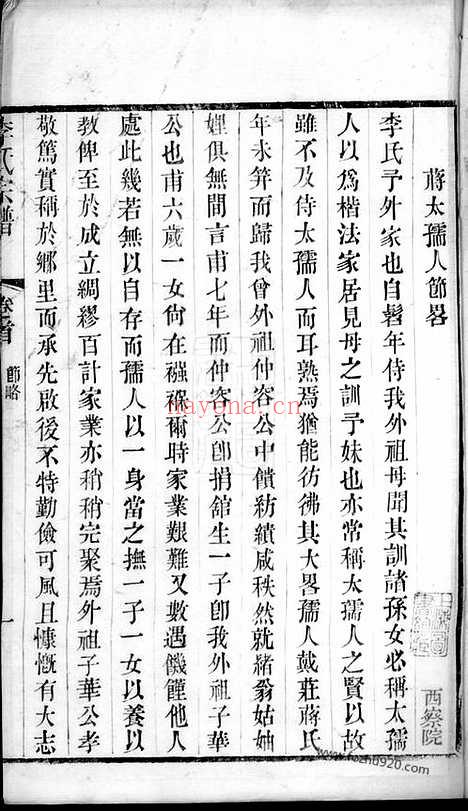 蔣太孺人節畧
李氏予外家也自髫年侍我外祖母聞其訓諸孫女必稱太孺
人以為楷法家居見母之訓予妹也亦常稱太孺人之賢以故
雖不及侍太孺人而耳熟焉猶能彷彿其大畧孺人戴莊蔣氏
年未筓而歸我曾外祖仲容公中饋紡績咸秩然就緒翁姑妯
娌俱無間言甫七年而仲容公卽捐舘生一子卽我外祖子華
公也甫六歲一女尙在襁褓爾時家業艱難又數遇饑饉他人
處此幾若無以自存而孺人以一身當之撫一子一女以養以
教俾至於成立綢繆百計家業亦稍稍完聚焉外祖子華公孝
敬篤實稱於鄉里而承先啟後不特勤儉可風且慷慨有大志
李氏宗譜
卷首
節略
一
西察院
nayona.cn
www.fozhu920.com